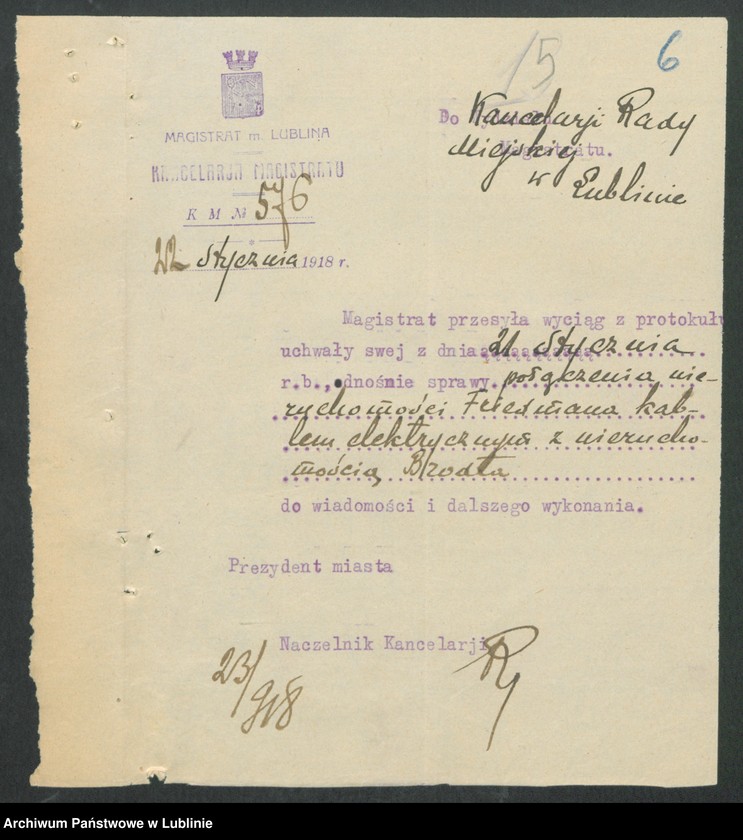 15
6
MAGISTRAT m. LUBLINA
KANCELARJA MAGISTRATU
K M № 576
22 stycznia 1918 r.
Do Kancelarji Rady
Miejskiej Magistratu.
w Lublinie
Magistrat przesyła wyciąg z protokułu
uchwały swej z dnia 21 stycznia
r.b., odnośnie sprawy połączenia nie-
ruchomości Friedmana kab-
lem elektrycznym z nierucho-
mością Brodta
do wiadomości i dalszego wykonania.
Prezydent miasta
Naczelnik Kancelarji
23/918
Archiwum Państwowe w Lublinie